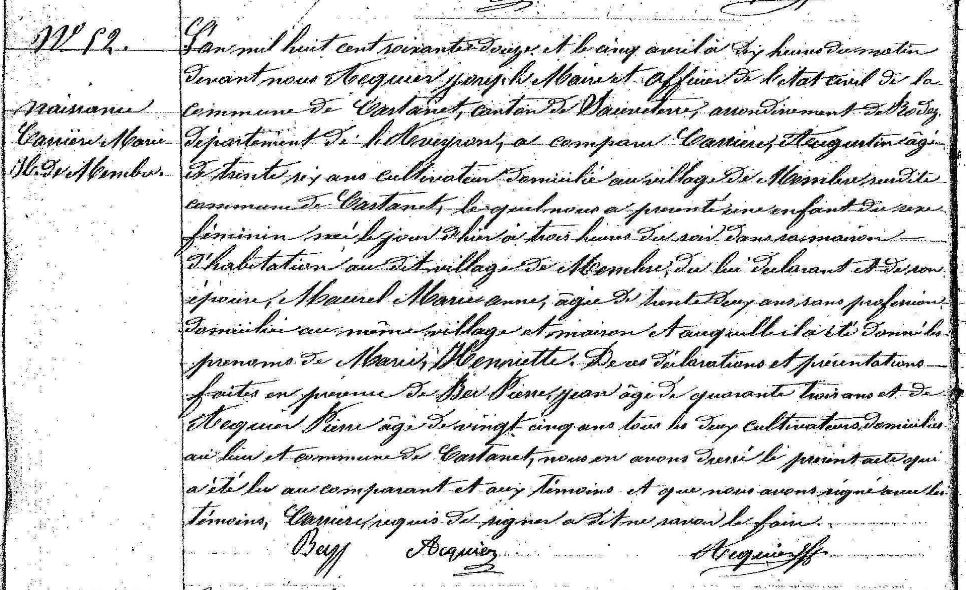 N° 52.
Naissance
Carrière Marie
H. de Membre.
L'an mil huit cent soixante douze, et le cinq avril à dix heures du matin
devant nous Acquier joseph Maire et officier de l'état civil de la
commune de Castanet, canton de Sauveterre, arrondissement de Rodez,
département de l'Aveyron, a comparu Carrière, Augustin âgé
de trente six ans cultivateur domicilié au village de Membre susdite
commune de Castanet, le quel nous a présenté une enfant du sexe
féminin née le jour d'hier à trois heures du soir dans sa maison
d'habitation au dit village de Membre, du lui déclarant et de son
épouse, Maurel Marie anne, âgée de trente deux ans, sans profession
domiciliée au même village et maison et auquelle il a été donné les
prenoms de Marie, Henriette. De ces déclarations et présentations
faites en présence de Bex Pierre, jean âgé de quarante trois ans et de
Acquier Pierre âgé de vingt cinq ans tous les deux cultivateurs, domiciliés
au lieu et commune de Castanet, nous en avons dressé le présent acte qui
a été lu au comparant et aux témoins et que nous avons signé avec les
témoins, Carrière, requis de signer a dit ne savoir le faire.
Acquier Acquier